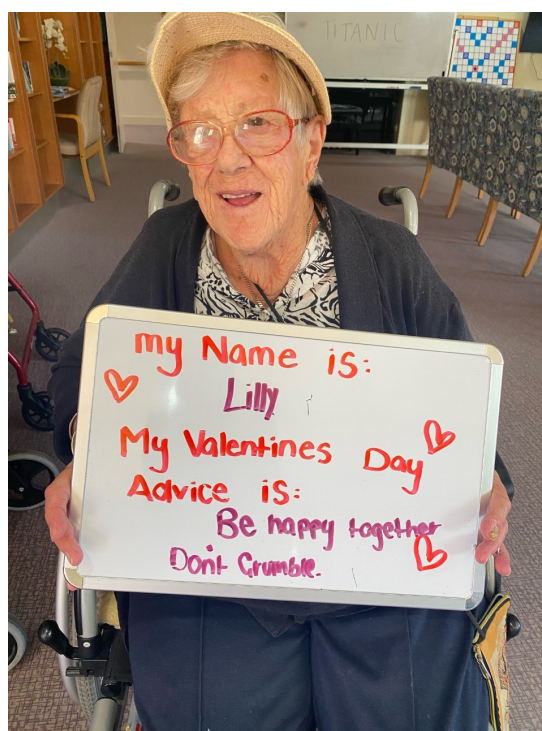 TITANIC
my Name is:
Lilly
My Valentines Day
Advice is:
Be happy together
Don't Grumble.